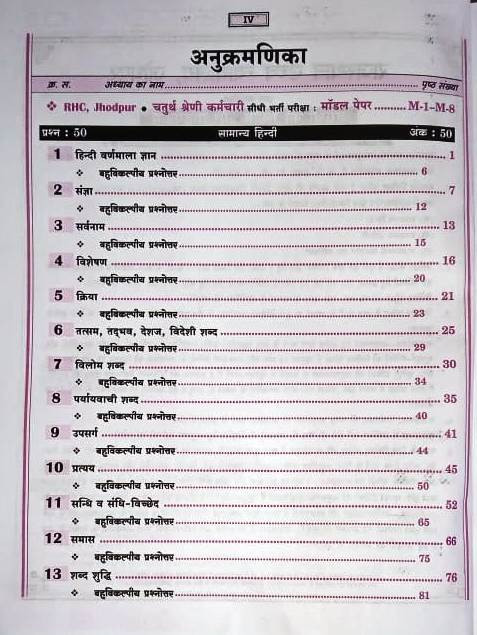 IV
अनुक्रमणिका
क्र. स. अध्याय का नाम.......... पृष्ठ संख्या
❖ RHC, Jhodpur ● चतुर्थ श्रेणी कर्मचारी सीधी भर्ती परीक्षा : मॉडल पेपर .......... M-1-M-8
प्रश्न : 50 सामान्य हिन्दी अंक : 50
1 हिन्दी वर्णमाला ज्ञान .......... 1
❖ बहुविकल्पीय प्रश्नोत्तर .......... 6
2 संज्ञा .......... 7
❖ बहुविकल्पीय प्रश्नोत्तर .......... 12
3 सर्वनाम .......... 13
❖ बहुविकल्पीय प्रश्नोत्तर .......... 15
4 विशेषण .......... 16
❖ बहुविकल्पीय प्रश्नोत्तर .......... 20
5 क्रिया .......... 21
❖ बहुविकल्पीय प्रश्नोत्तर .......... 23
6 तत्सम, तद्भव, देशज, विदेशी शब्द .......... 25
❖ बहुविकल्पीय प्रश्नोत्तर .......... 29
7 विलोम शब्द .......... 30
❖ बहुविकल्पीय प्रश्नोत्तर .......... 34
8 पर्यायवाची शब्द .......... 35
❖ बहुविकल्पीय प्रश्नोत्तर .......... 40
9 उपसर्ग .......... 41
❖ बहुविकल्पीय प्रश्नोत्तर .......... 44
10 प्रत्यय .......... 45
❖ बहुविकल्पीय प्रश्नोत्तर .......... 50
11 सन्धि व संधि-विच्छेद .......... 52
❖ बहुविकल्पीय प्रश्नोत्तर .......... 65
12 समास .......... 66
❖ बहुविकल्पीय प्रश्नोत्तर .......... 75
13 शब्द शुद्धि .......... 76
❖ बहुविकल्पीय प्रश्नोत्तर .......... 81